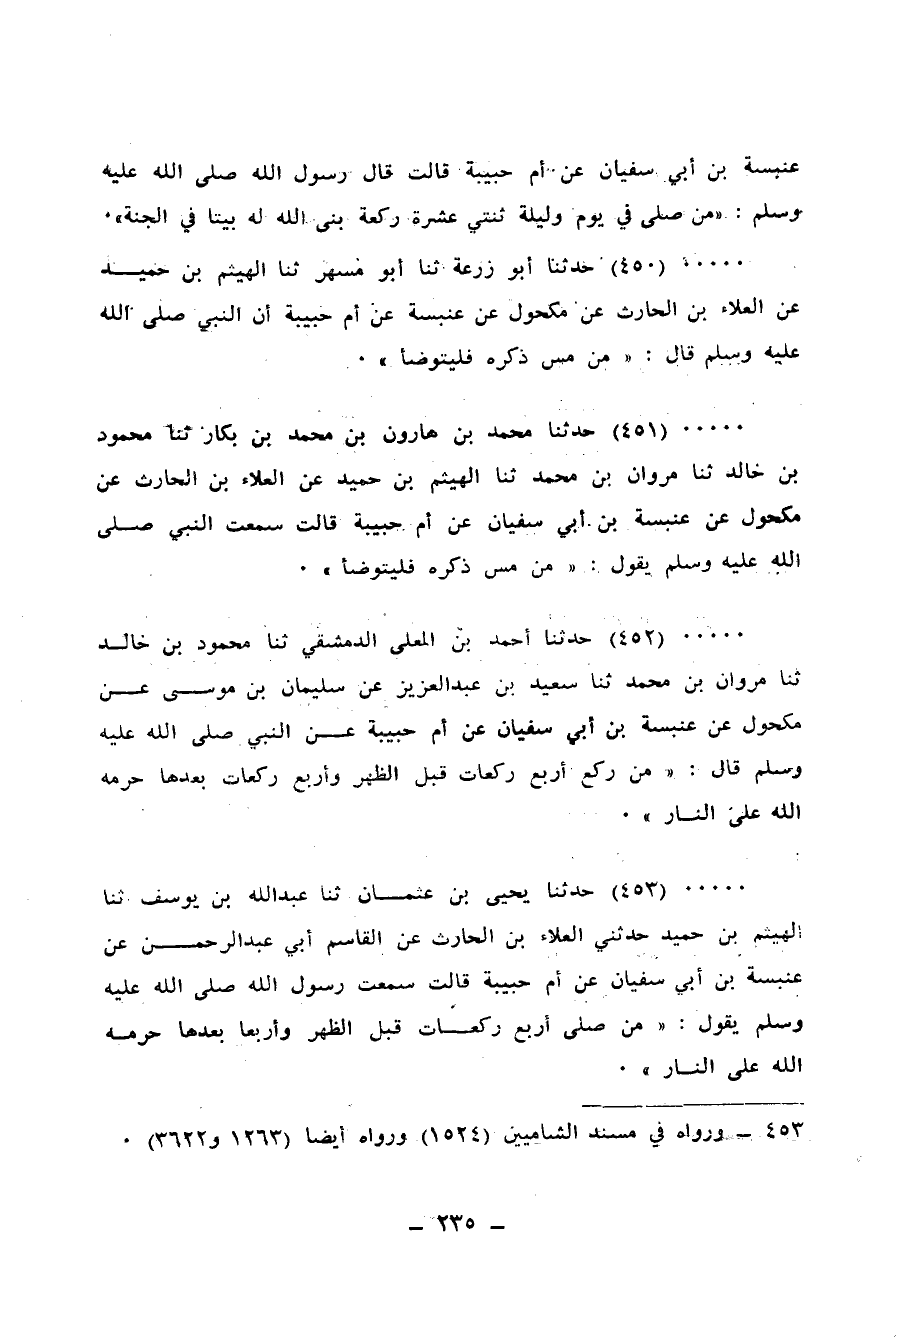 عنبسة بن أبي سفيان عن أم حبيبة قالت قال رسول الله صلى الله عليه
وسلم : «من صلى في يوم وليلة ثنتي عشرة ركعة بنى الله له بيتا في الجنة».
..... (٤٥٠) حدثنا أبو زرعة ثنا أبو مسهر ثنا الهيثم بن حميـــد
عن العلاء بن الحارث عن مكحول عن عنبسة عن أم حبيبة أن النبي صلى الله
عليه وسلم قال : « من مس ذكره فليتوضأ » .
..... (٤٥١) حدثنا محمد بن هارون بن محمد بن بكار ثنا محمود
بن خالد ثنا مروان بن محمد ثنا الهيثم بن حميد عن العلاء بن الحارث عن
مكحول عن عنبسة بن أبي سفيان عن أم حبيبة قالت سمعت النبي صـــلى
الله عليه وسلم يقول : « من مس ذكره فليتوضأ » .
..... (٤٥٢) حدثنا أحمد بن المعلى الدمشقي ثنا محمود بن خالـــد
ثنا مروان بن محمد ثنا سعيد بن عبدالعزيز عن سليمان بن موســـى عـــن
مكحول عن عنبسة بن أبي سفيان عن أم حبيبة عـــن النبي صلى الله عليه
وسلم قال : « من ركع أربع ركعات قبل الظهر وأربع ركعات بعدها حرمه
الله على النـــار » .
..... (٤٥٣) حدثنا يحيى بن عثمـــان ثنا عبدالله بن يوسف ثنا
الهيثم بن حميد حدثني العلاء بن الحارث عن القاسم أبي عبدالرحمـــن عن
عنبسة بن أبي سفيان عن أم حبيبة قالت سمعت رسول الله صلى الله عليه
وسلم يقول : « من صلى أربع ركعـــات قبل الظهر وأربعا بعدها حرمـــه
الله على النـــار » .
٤٥٣ ــ ورواه في مسند الشاميين (١٥٢٤) ورواه أيضا (١٢٦٣ و٣٦٢٢) .
ــ ٢٣٥ ــ